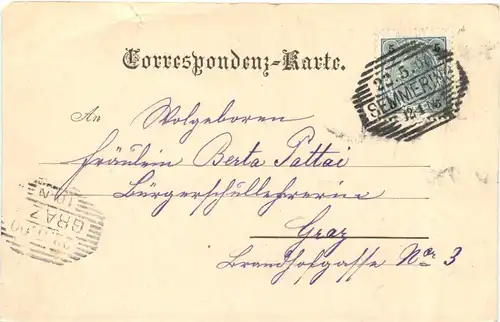 Correspondenz-Karte.
SEMMERING
An Wolgeboren
Fräulein Berta Pattai
Bürgerschullehrerin
Graz
Brandhofgasse Nᵒ 3
GRAZ